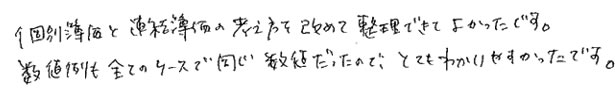 個別簿価と連結簿価の考え方を改めて整理できてよかったです。
数値例も全てのケースで同じ数値だったので、とてもわかりやすかったです。